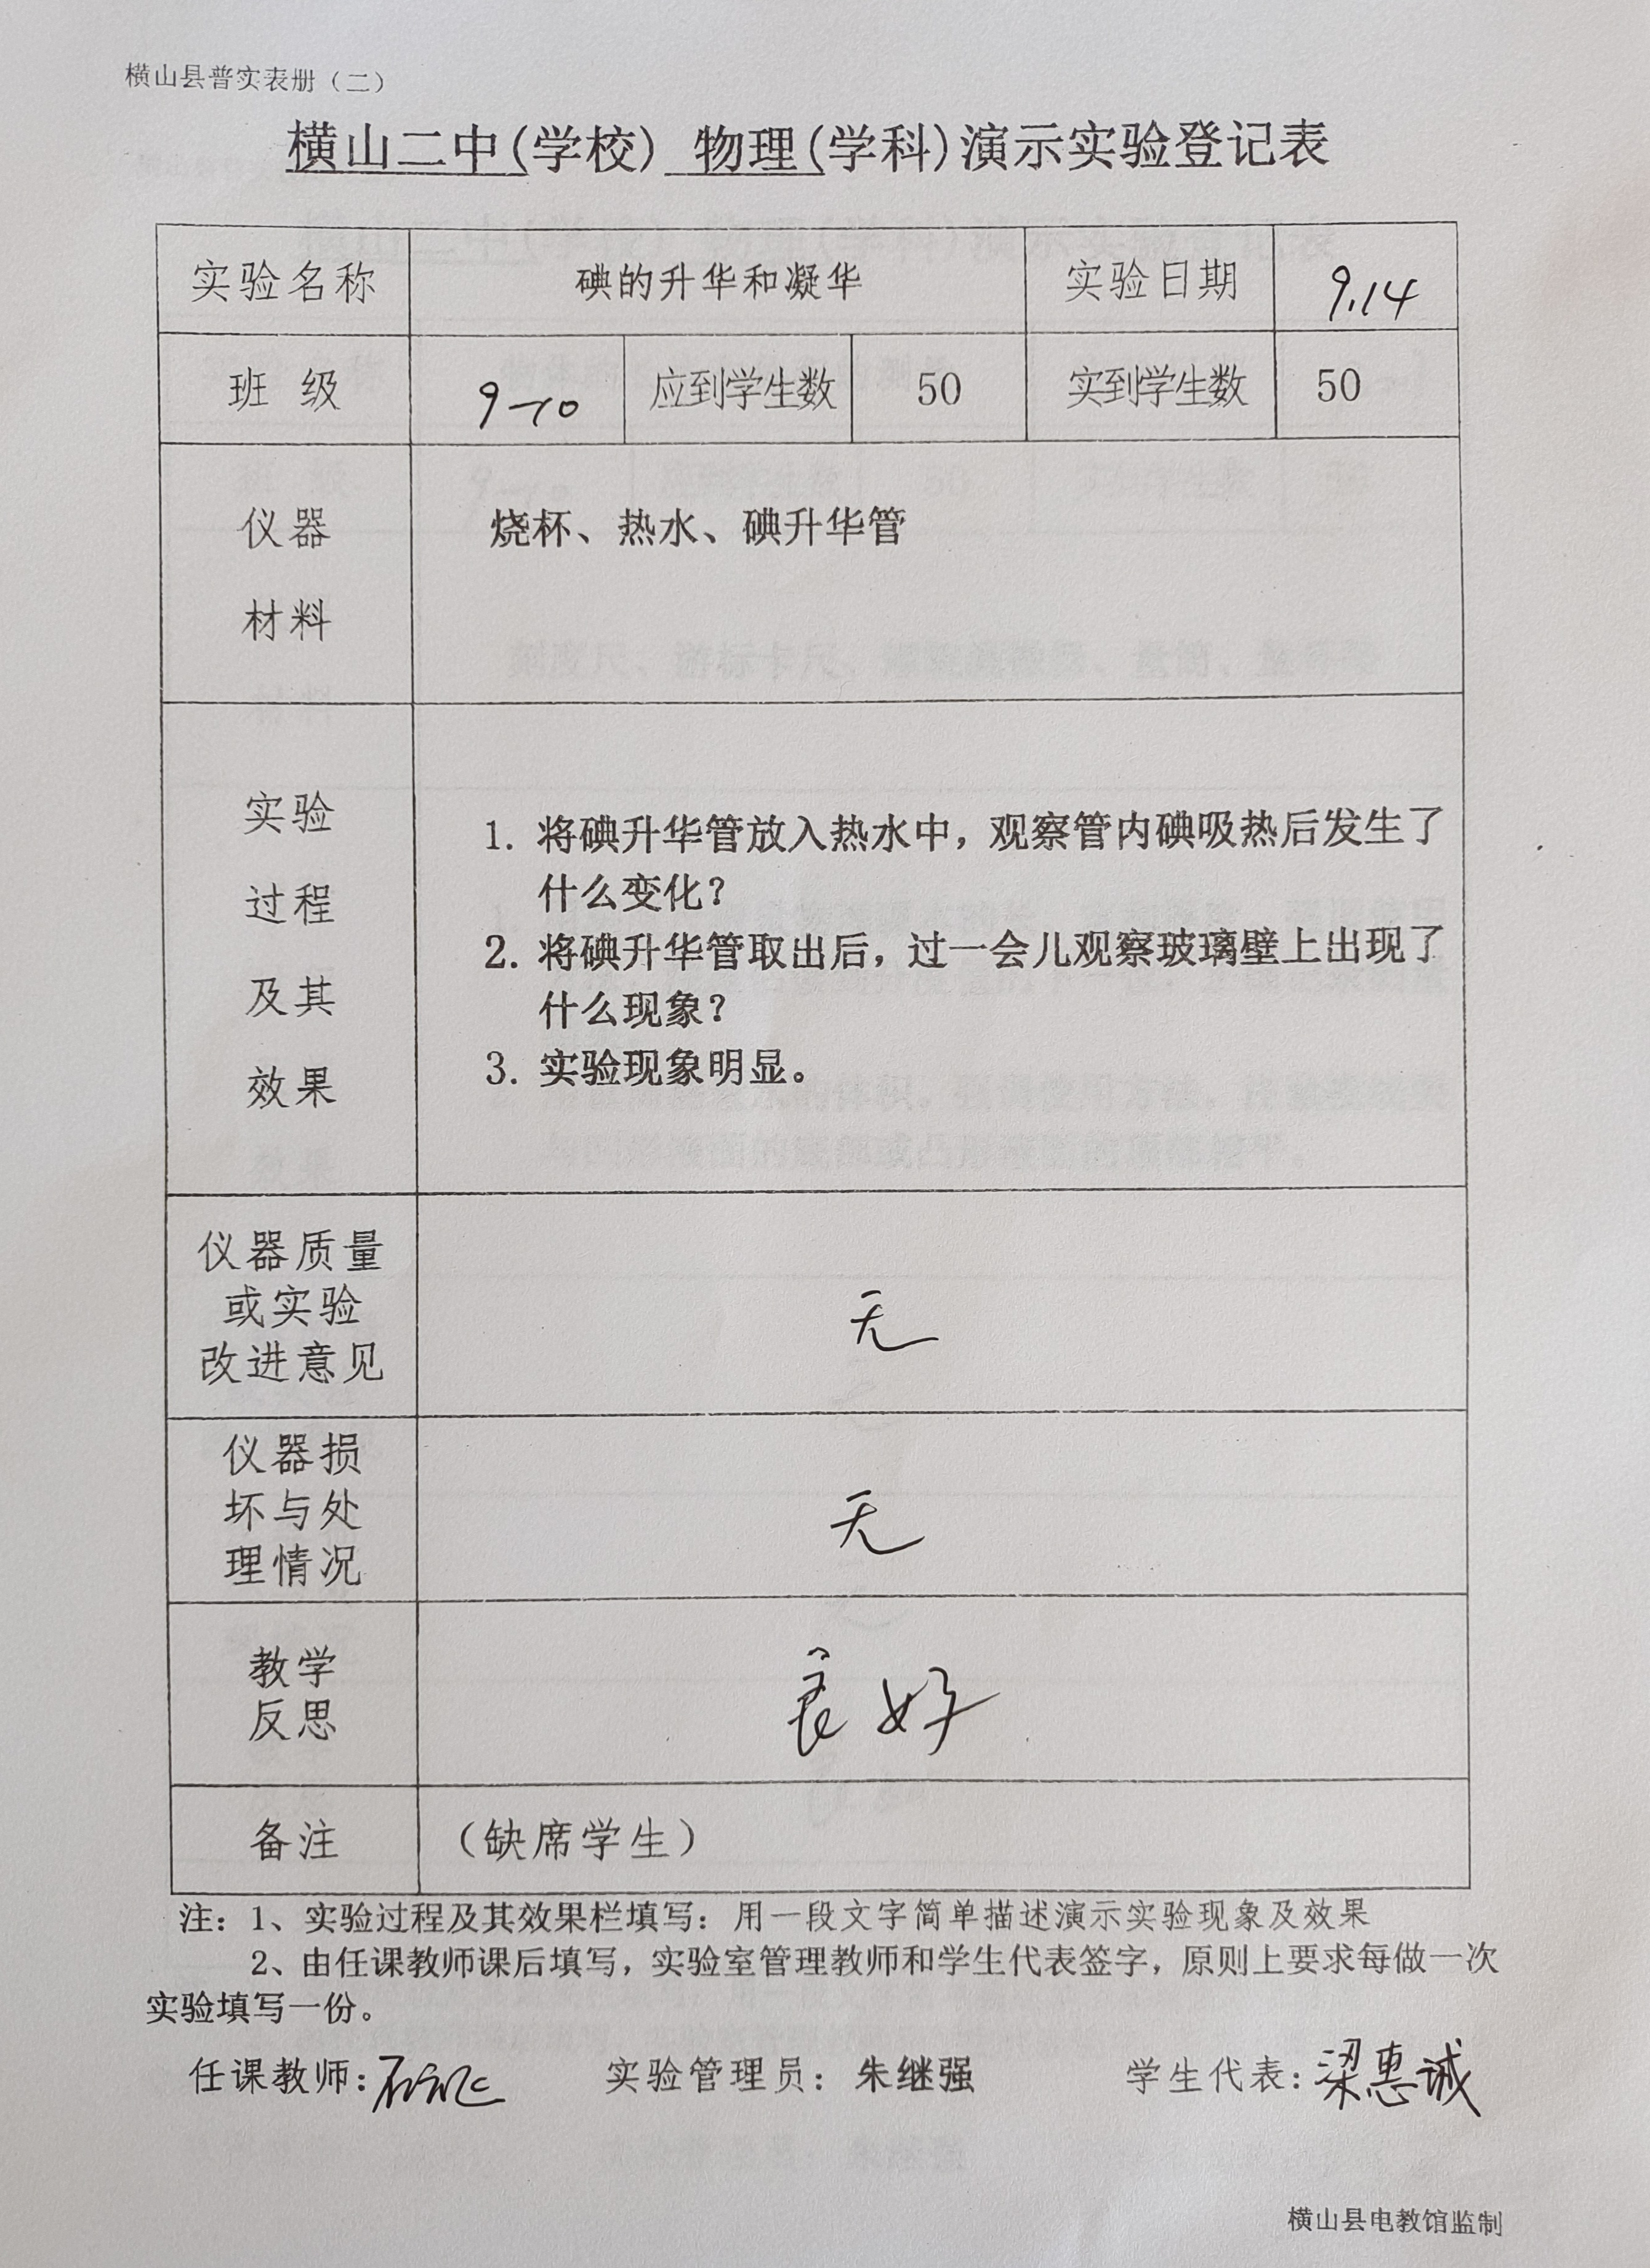 横山县普实表册（二）
横山二中(学校) 物理(学科)演示实验登记表
实验名称 碘的升华和凝华 实验日期 9.14
班 级 9-10 应到学生数 50 实到学生数 50
仪器
材料
烧杯、热水、碘升华管
实验
过程
及其
效果
1. 将碘升华管放入热水中，观察管内碘吸热后发生了
什么变化？
2. 将碘升华管取出后，过一会儿观察玻璃壁上出现了
什么现象？
3. 实验现象明显。
仪器质量
或实验
改进意见
无
仪器损
坏与处
理情况
无
教学
反思
良好
备注 （缺席学生）
注：1、实验过程及其效果栏填写：用一段文字简单描述演示实验现象及效果
2、由任课教师课后填写，实验室管理教师和学生代表签字，原则上要求每做一次
实验填写一份。
任课教师： 实验管理员：朱继强 学生代表：梁惠诚
横山县电教馆监制